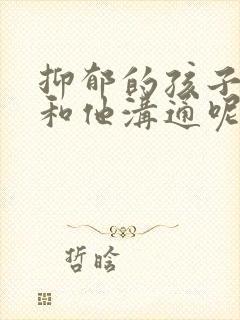 抑郁的孩子
和他溝通呢
哲晗